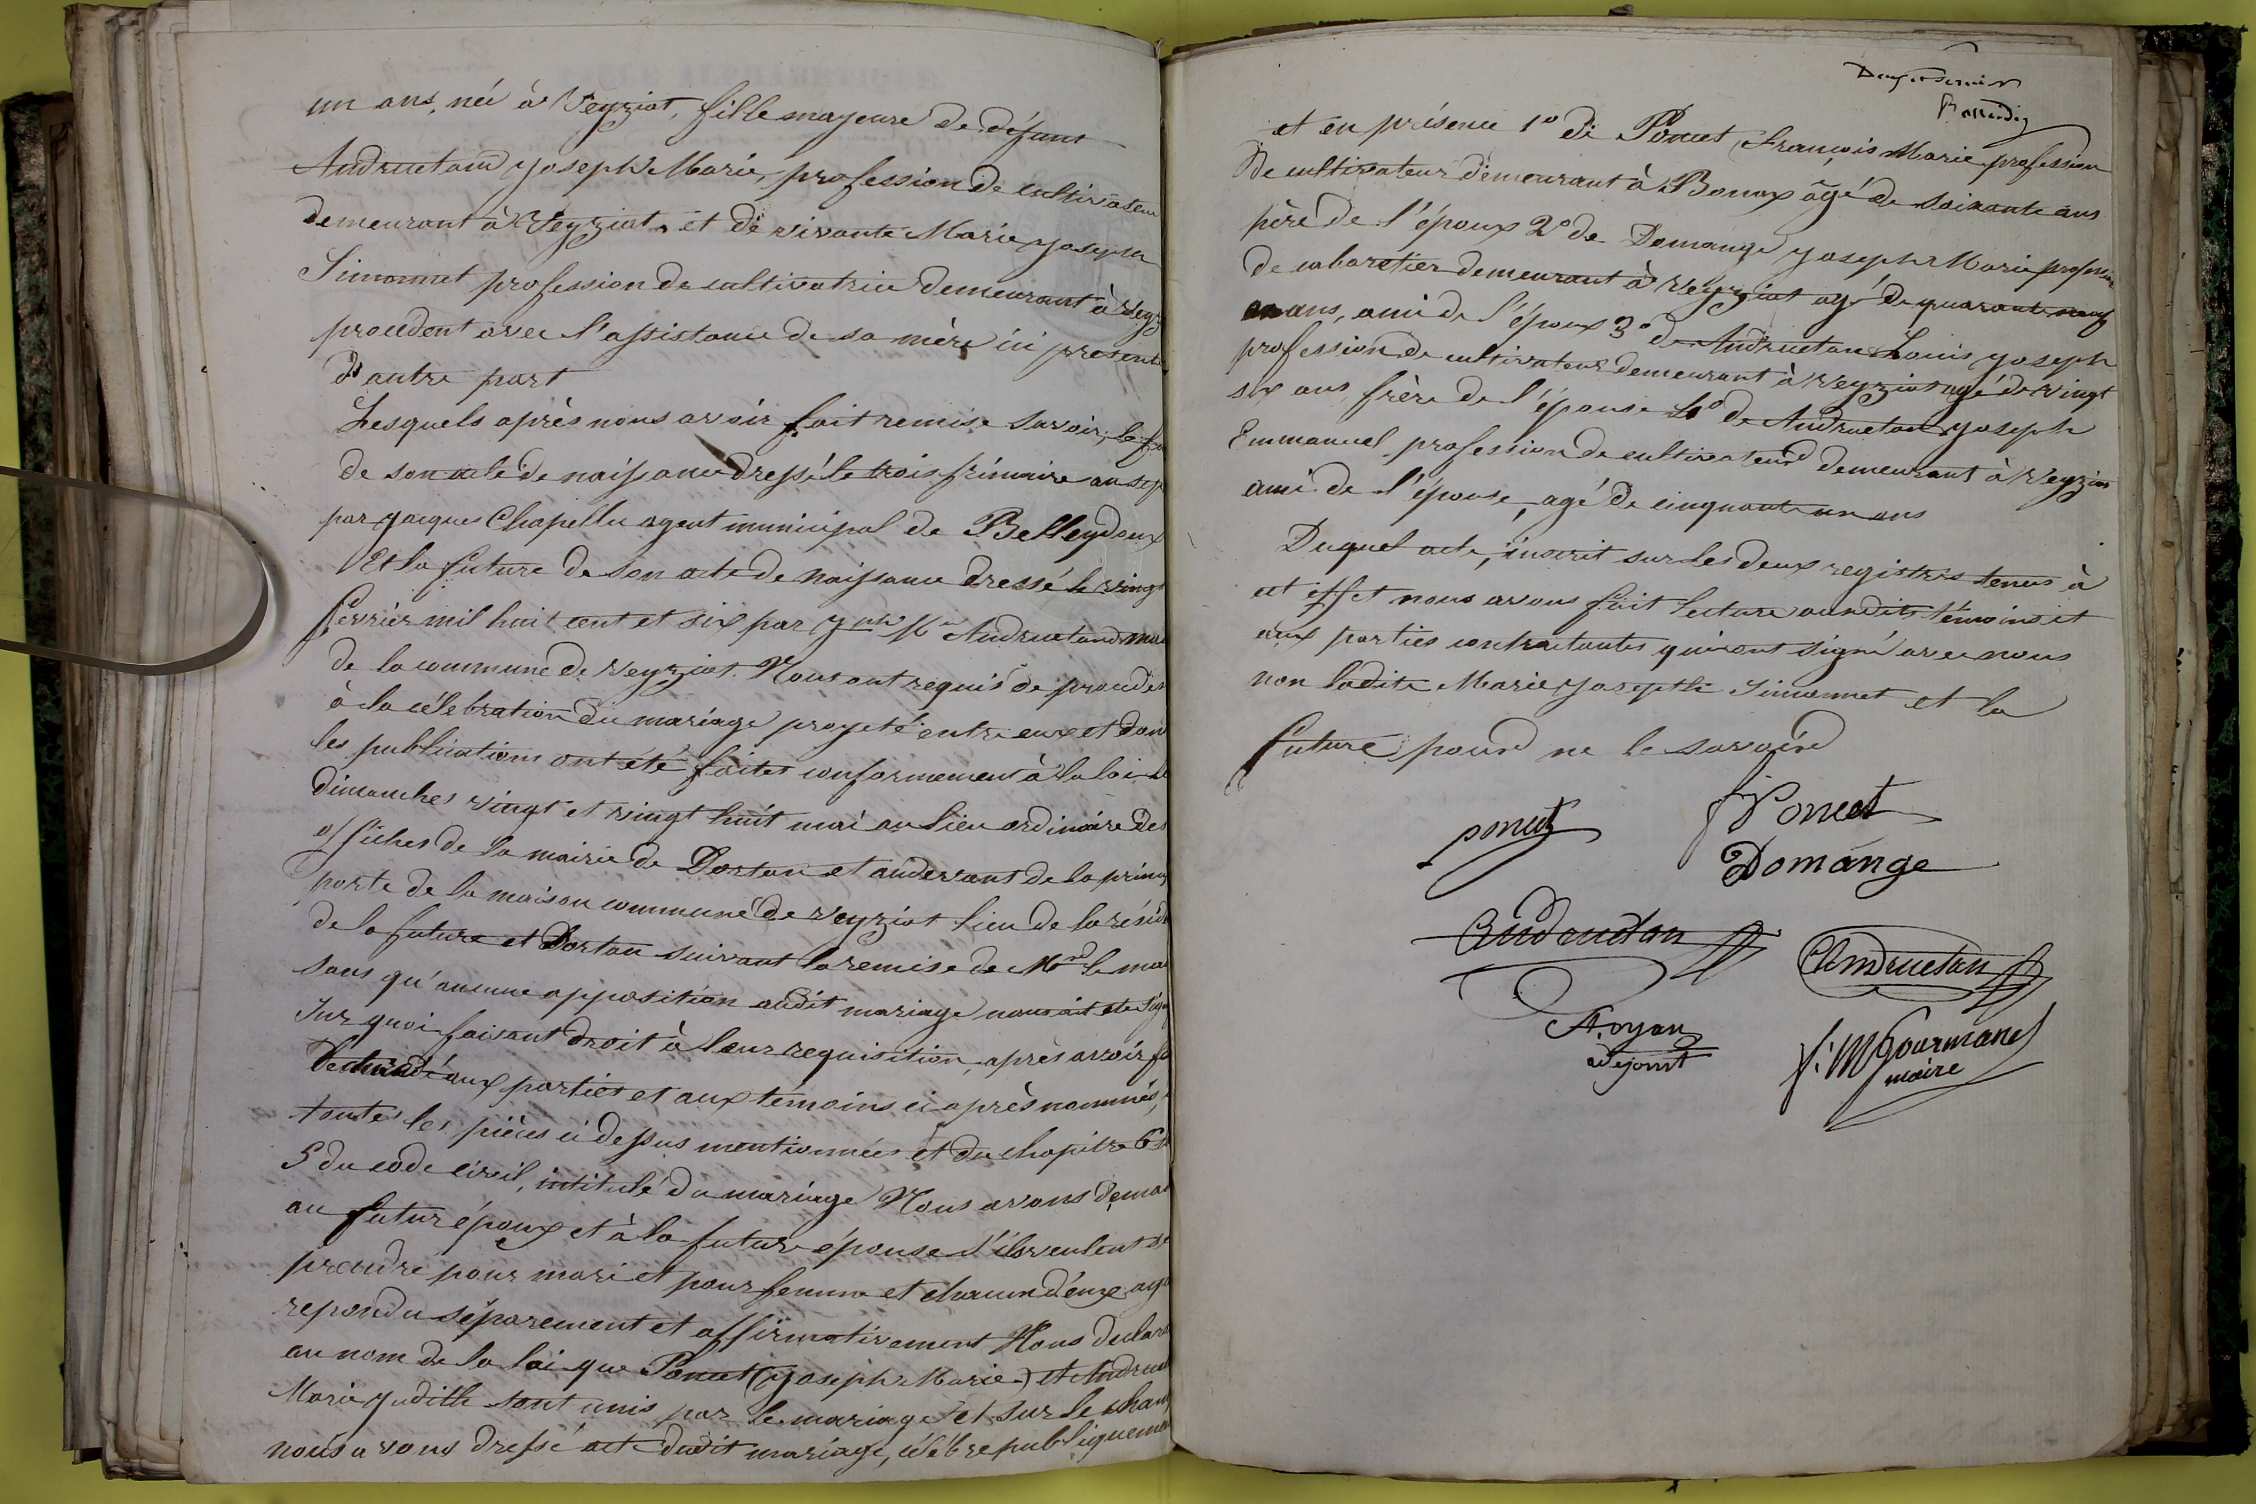 un ans, née à Veyziat, fille majeure de défunt
Andruetan Joseph Marie, profession de cultivateur
demeurant à Veyziat et de vivante Marie Joseph
Simonnet profession de cultivatrice demeurant à Veyz
procédent avec l'assistance de sa mère ici présente
d'autre part
Lesquels après nous avoir fait remise savoir, le fu
de son acte de naissance dressé le trois frimaire an sep
par Jacques Chapellu agent municipal de Belleydoux
Et la future de son acte de naissance dressé le vingt
février mil huit cent et six par Jph Mie Andruetan mai
de la commune de Veyziat. Nous ont requis de procéder
à la célébration du mariage projeté entre eux et dont
les publications ont été faites conformement à la loi le
dimanches vingt et vingt huit mai au lieu ordinaire des
affiches de la mairie de Dortan et audevant de la princ
porte de la maison commune de Veyziat lieu de la résid
de la future et Dortan suivant la remise de Mr le mai
sans qu'aucune opposition audit mariage nous ait été sig
Sur quoi faisant droit à leur requisition, après avoir fa
lecture aux parties et aux témoins ci après nommés,
toutes les pièces ci dessus mentionnées et du chapitre 6
5 du code civil, intitulé du mariage Nous avons deman
au futur époux et à la future épouse s'ils veulent se
prendre pour mari et pour femme et chacun d'eux aya
repondu séparement et affirmativement Nous declaro
au nom de la loi que Poncet (Joseph Marie) et Andruet
Marie Judith sont unis par le mariage et sur le cham
nous avons dressé acte dudit mariage, célébré publiquemen
et en présence 1º de Poncet François Marie profession
de cultivateur demeurant à Bonaz âgé de soixante ans
père de l'époux 2º de Domange Joseph Marie profession
de cabaretier demeurant à Veyziat agé de quarante neuf
ans, ami de l'époux 3º de Andruetan Louis Joseph
profession de cultivateur demeurant à Veyziat agé de vingt
six ans frère de l'épouse 4º de Andruetan Joseph
Emmanuel profession de cultivateur demeurant à Veyziat
ami de l'épouse, agé de cinquante un ans
Duquel acte, inscrit sur les deux registres tenus à
cet effet nous avons fait lecture auxdits témoins et
aux parties contractantes qui ont signé avec nous
non ladite Marie Joseph Simonnet et la
future pour ne le savoir
poncet
f Poncet
Domange
Andruetan
Andruetan
adejoint
f: M Gourmand
maire